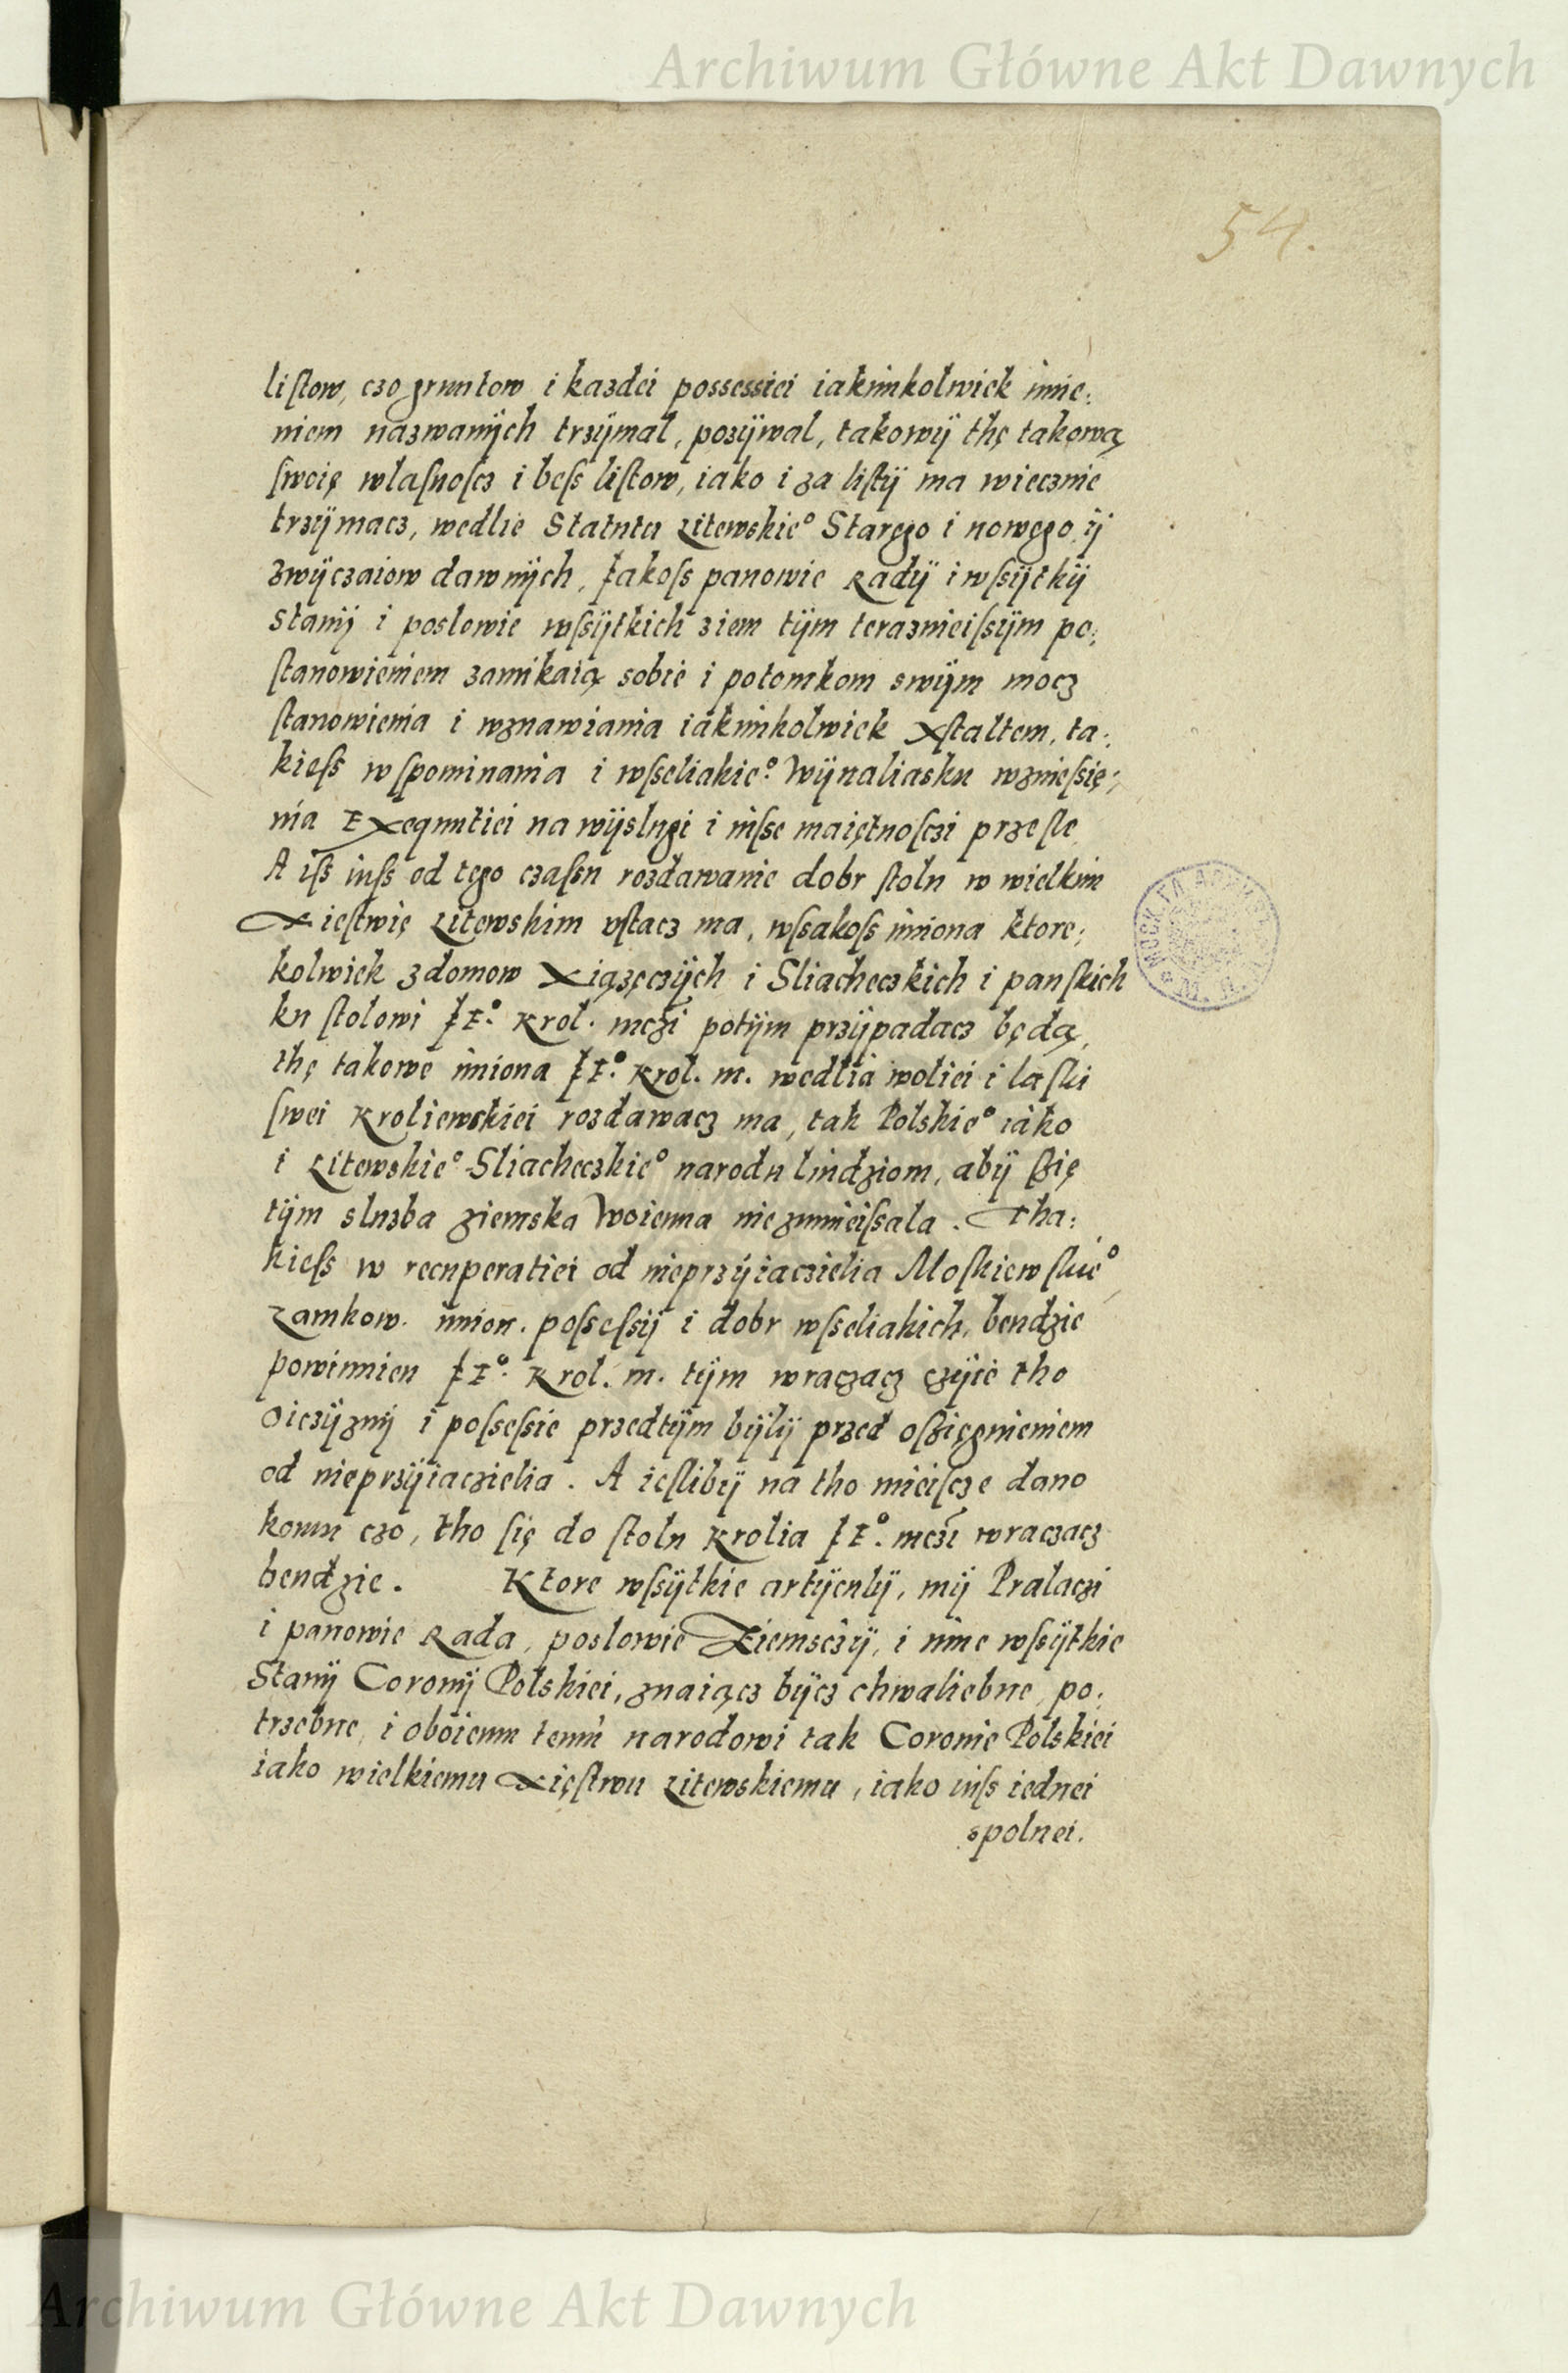 Archiwum Główne Akt Dawnych
54.
liſtow, czo gruntow i kazdei possessiei iakimkolwiek imie:
niem nazwanÿch trzÿmal, pozÿwal, takowÿ thę takową
ſwoię wlaſnoſcz i beſs liſtow, iako i za liſtÿ ma wiecznie
trzÿmacz, wedlie Statutu Litewskieº Starego i nowego, ÿ
zwÿczaiow dawnÿch, Jakoſs panowie Radÿ i wſsÿtkÿ
Stanÿ i poslowie wſsÿtkich ziem tÿm teraznieiſsÿm po:
ſtanowieniem zamikaią sobie i potomkom swÿm mocz
ſtanowienia i wznawiania iakimkolwiek Xſtaltem, ta:
kieſs wſpominania i wſseliakieº Wÿnaliasku wznieſię:
nia Exequutiei na wÿslugi i inſse maiętnoſczi przeſle
A iſs iuſs od tego czaſsu rozdawanie dobr ſtolu w wielkim
Xieſtwię Litewskim vſtacz ma, wſsakoſs imiona ktore:
kolwiek z domow Xiązęczÿch i Sliacheczkich i panſkich
ku ſtolowi JEº Krol. mczi potÿm przÿpadacz będą,
thę takowe imiona JEº Krol. m. wedlia woliei i laſki
ſwei Kroliewskiei rozdawacz ma, tak Polskieº iako
i Litewskieº Sliacheczkieº narodu liudziom, abÿ ſzię
tÿm sluzba ziemska Woienna nie zmnieiſsala. Tha:
kieſs w recuperatiei od nieprzÿiaczielia Moſkiewſkieº
zamkow. imion. poſseſsÿ i dobr wſseliakich, bendzie
powinnien JEº Krol. m. tÿm wraczacz czÿie tho
oiczÿznÿ i poſseſsie przedtÿm bÿlÿ przed oſzięgnieniem
od nieprzÿiaczielia. A ieſlibÿ na tho mieiſcze dano
komu czo, tho ſię do ſtolu Krolia JEº mczi wraczacz
bendzie. Ktore wſsÿtkie artÿculÿ, mÿ Pralaczi
i panowie Rada, poslowie Ziemsczÿ, i inne wſsÿtkie
Stanÿ Coronÿ Polskiei, znaiącz bÿcz chwaliebne, po:
trzebne, i oboiemu temu narodowi tak Coronie Polskiei
iako wielkiemu Xięſtwu Litewskiemu, iako iuſs iednei
spolnei.
Archiwum Główne Akt Dawnych